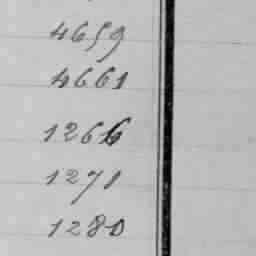 4659
4661
1266
1271
1280